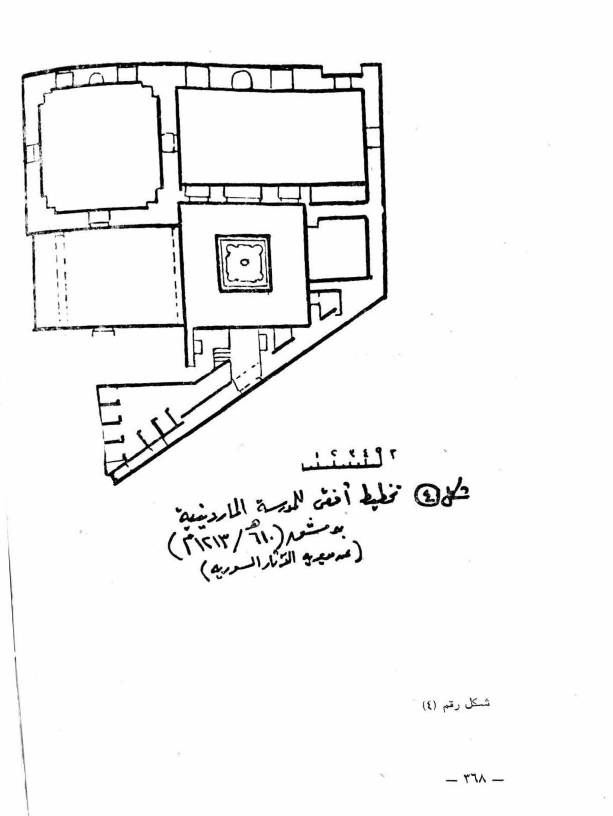 ١ ٢ ٣ ٤ ٥ م
شكل ④ تخطيط أفقى للمدرسة الماردينية
بدمشق (٦١٠هـ/١٢١٣م)
(عن مديرية الآثار السورية)
شكل رقم (٤)
— ٣٦٨ —